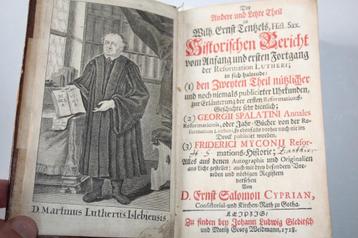 D. Martinus Lutherus Islebiensis.
Der
Andere und Letzte Theil
Wilh. Ernst Tentzels, Hist. Sax.
Historischen Bericht
vom Anfang und ersten Fortgang
der Reformation LUTHERI;
in sich haltende:
(1) den Zweyten Theil nützlicher
und noch niemals publicirter Uhrkunden,
zur Erläuterung der ersten Reformations-
Geschichte sehr dienlich;
(2) GEORGII SPALATINI Annales
Reformationis, oder Jahr-Bücher von der Re-
formation Lutheri,
Druck publiciret worden.
(3) FRIDERICI MYCONII Refor-
mations-Historie;
Alles aus denen Autographis und Originalien
ans Licht gestellet; auch mit dreyen besondern Vor-
reden und nöthigen Registern
versehen
Von
D. Ernst Salomon CYPRIAN,
Consistorial-und Kirchen-Rath zu Gotha.
LEIPZIG:
Zu finden bey Johann Ludwig Gleditsch
und Moritz Georg Weidmann, 1718.